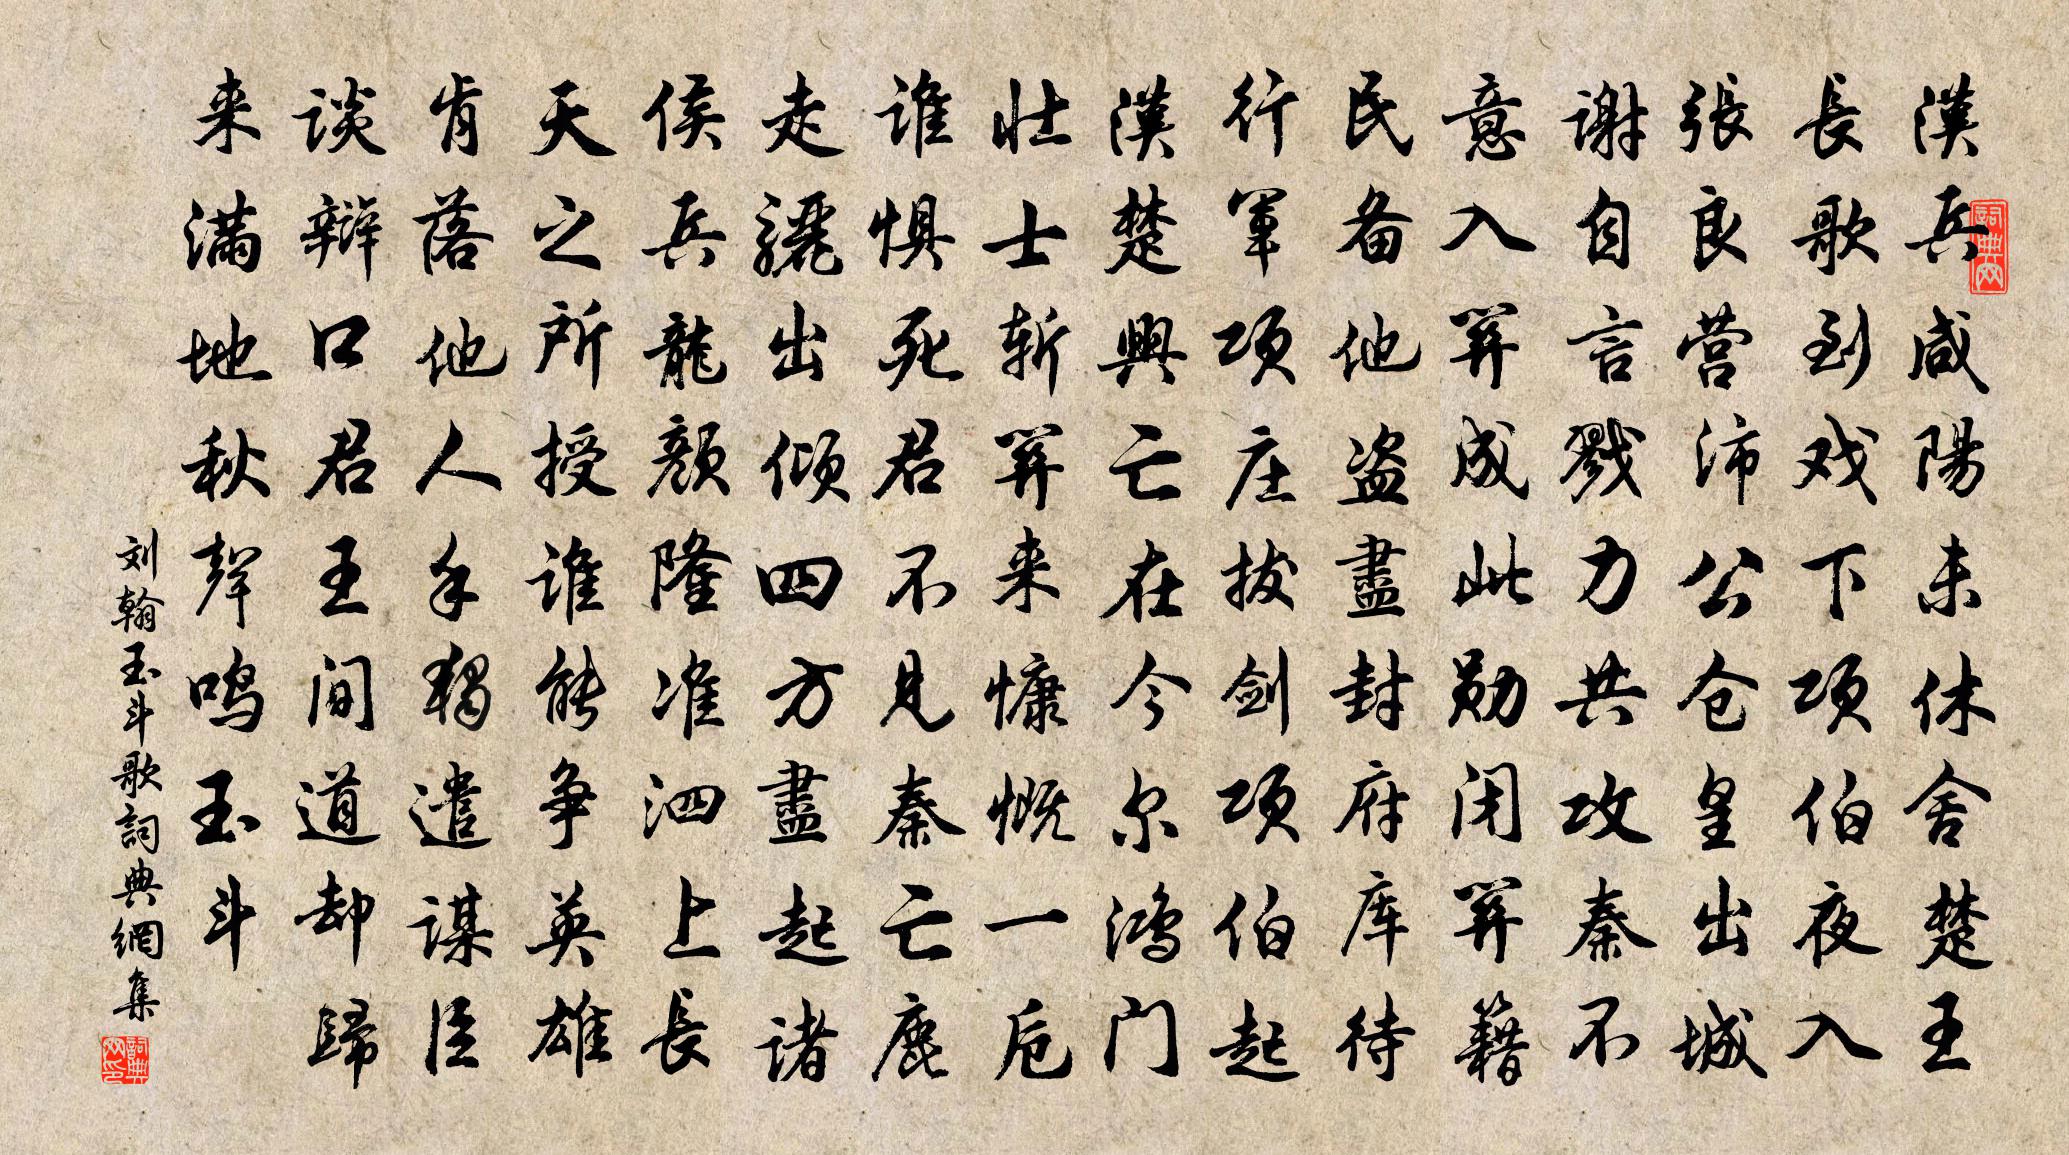 漢兵咸陽未休舍楚王
長歌到戏下项伯夜入
張良营沛公仓皇出城
谢自言戮力共攻秦不
意入関成此勋闭関籍
民备他盗盡封府库待
行軍项庄拔剑项伯起
漢楚興亡在今尔鸿门
壮士斩関来慷慨一卮
谁惧死君不見秦亡鹿
走骊出倾四方盡起诸
侯兵龍颜隆准泗上長
天之所授谁能争英雄
肯落他人手獨遣谋臣
谈辩口君王间道却歸
来满地秋聲鸣玉斗
刘翰玉斗歌詞典網集
詞典网
詞典网印